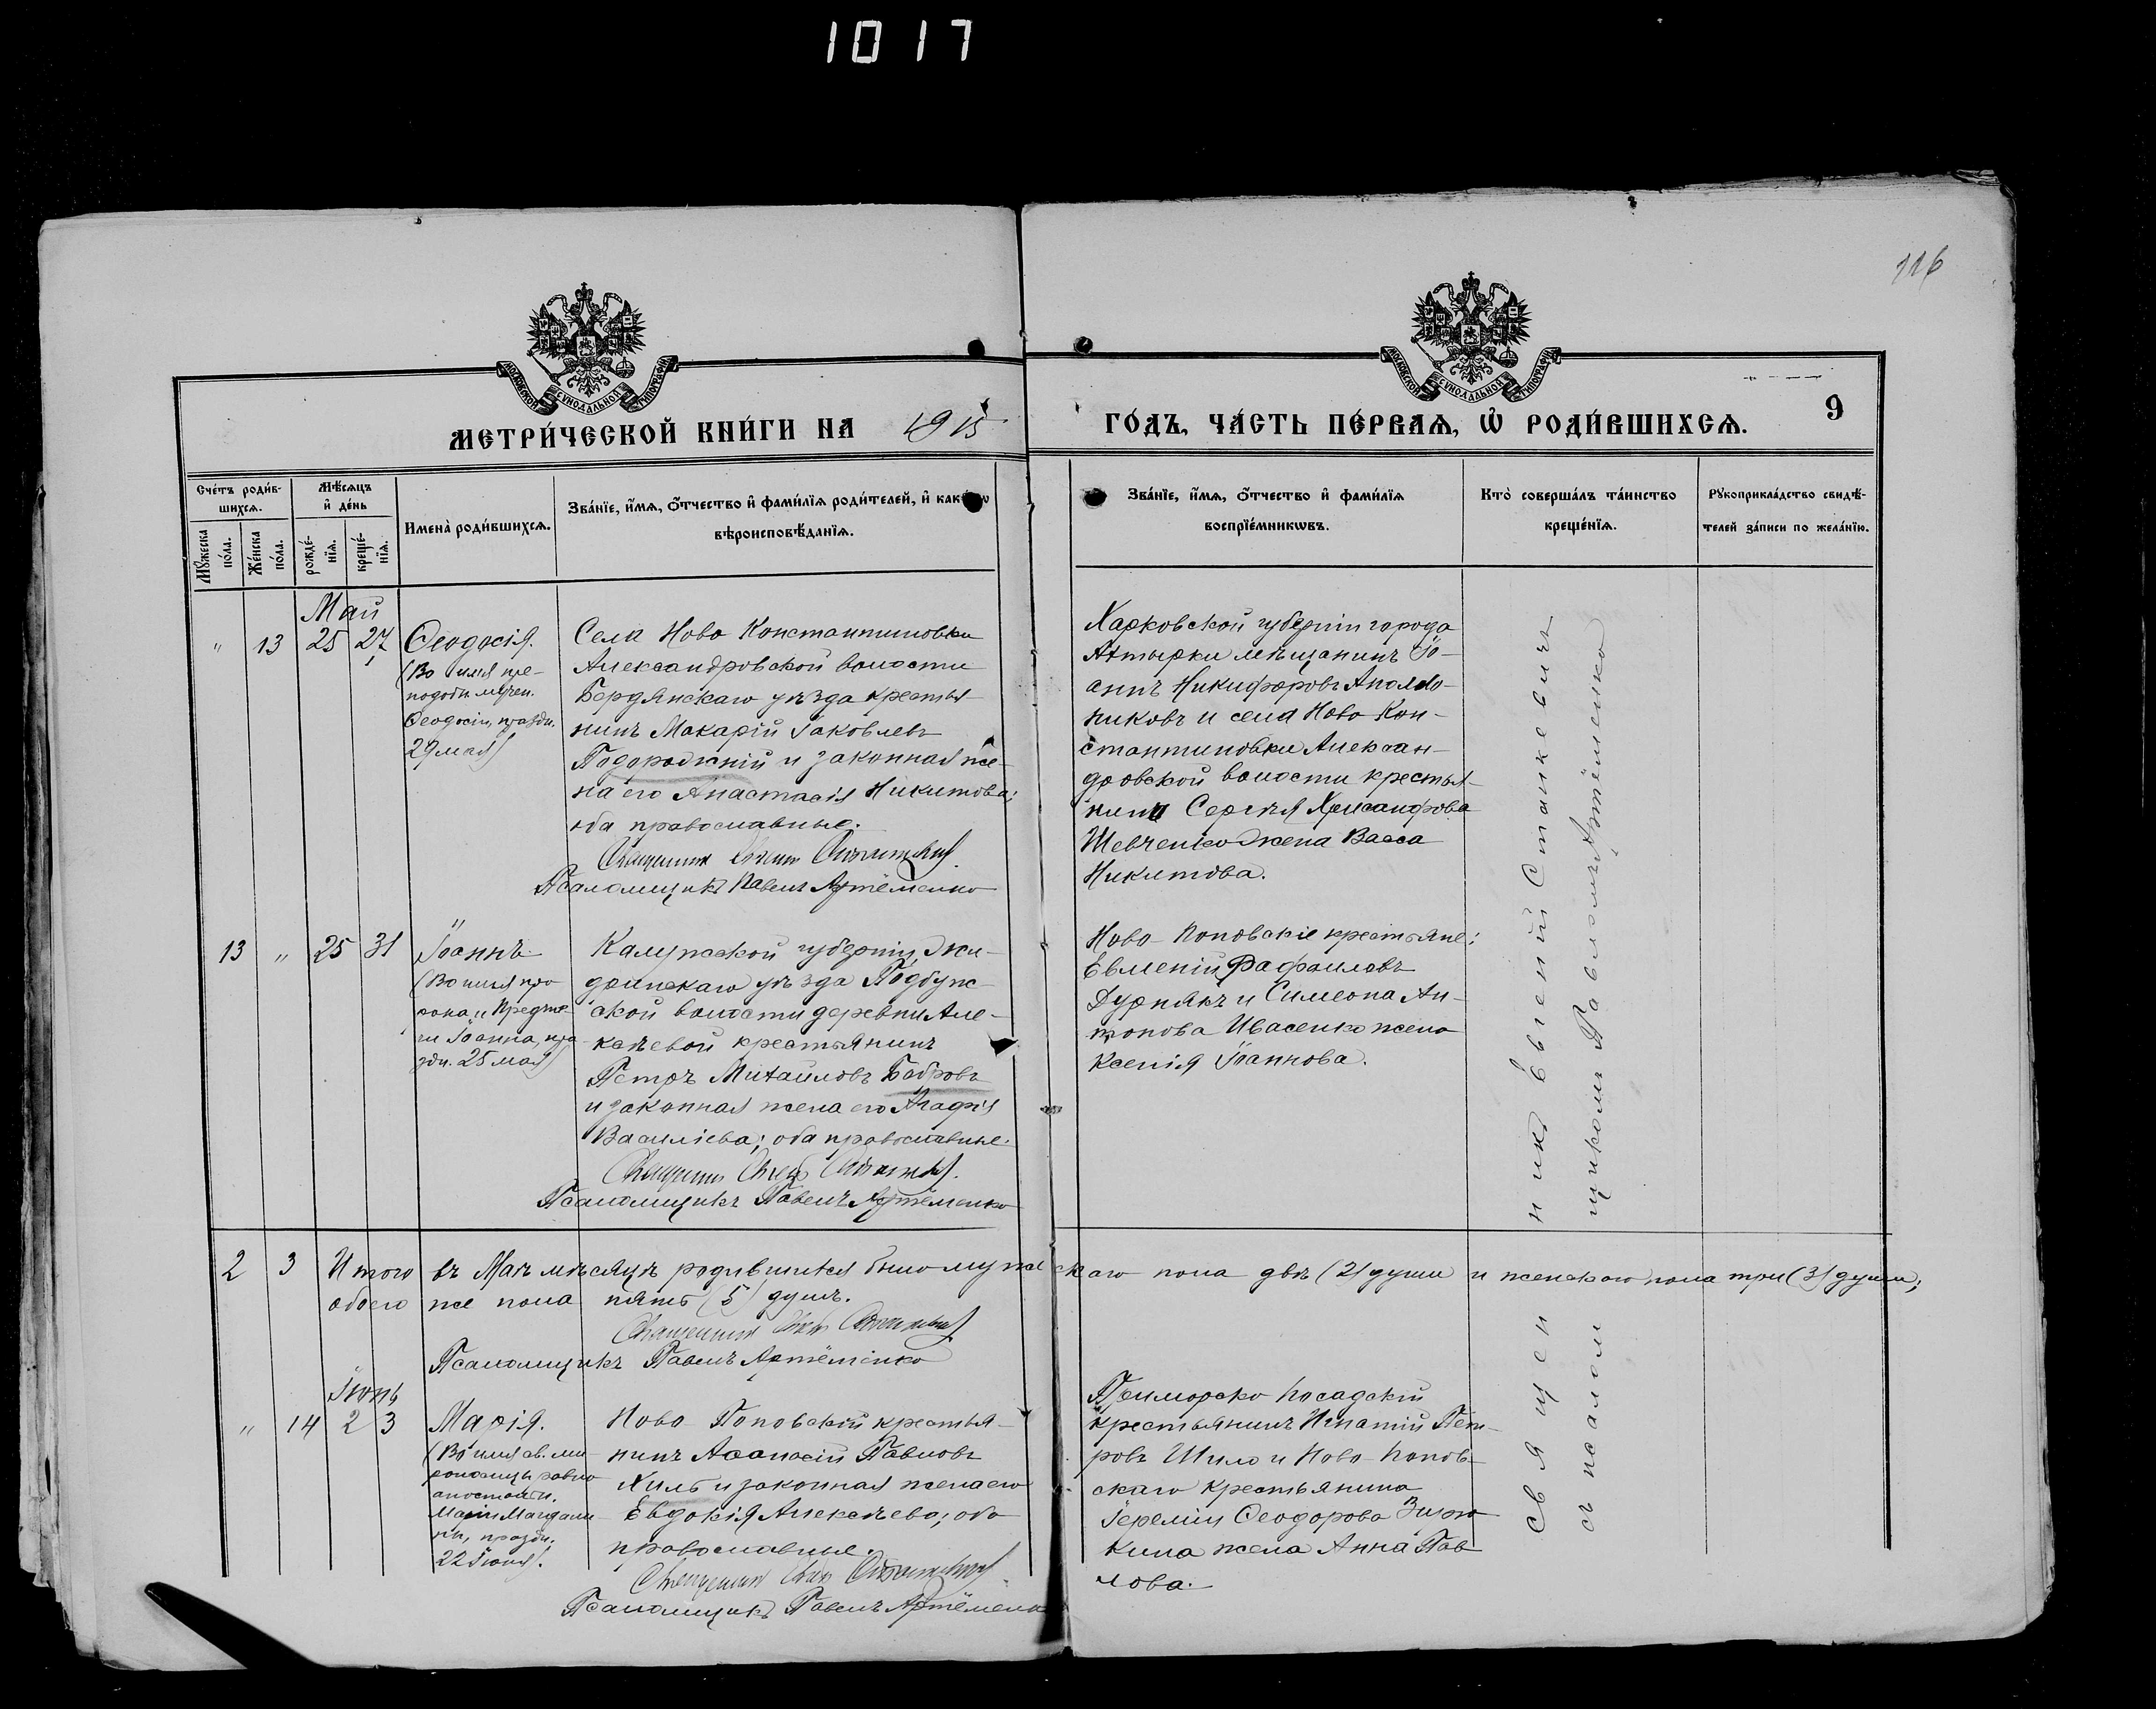 1017
116
МОСКОВСКОЙ СѴНОДАЛЬНОЙ ТИПОГРАФІИ
МОСКОВСКОЙ СѴНОДАЛЬНОЙ ТИПОГРАФІИ
МЕТРИ́ЧЕСКОЙ КНИ́ГИ НА 1915
ГО́ДЪ, ЧА́СТЬ ПЕ́РВАѦ, Ѡ҆ РОДИ́ВШИХСѦ. 9
Сче́тъ роди́в-
шихсѧ.
Мѹ́жеска по́ла.
Же́нска по́ла.
Мѣ́сѧцъ
и҆ де́нь
рожде́-
нїѧ.
креще́-
нїѧ.
И҆мена̀ роди́вшихсѧ.
Зва́нїе, и҆́мѧ, ѻ҆́тчество и҆ фами́лїѧ роди́телей, и҆ како́гѡ
вѣроисповѣ́данїѧ.
Зва́нїе, и҆́мѧ, ѻ҆́тчество и҆ фами́лїѧ
воспрїе́мникѡвъ.
Кто̀ соверша́лъ та́инство
креще́нїѧ.
Рѹкоприкла́дство свидѣ́-
телей за́писи по жела́нїю.
Май
" 13 25 27
Ѳеодосія.
(Во имя пре-
подобн. мучен.
Ѳеодосіи, праздн.
29 мая)
Села Ново Константиновки
Александровской волости
Бердянскаго уѣзда крестья-
нинъ Макарій Іаковлевъ
Подорожній и законная же-
на его Анастасія Никитова;
оба православные.
Священник
Псаломщикъ Павелъ Артёменко
Харковской губерніи города
Ахтырки мѣщанинъ Іо-
аннъ Никифоровъ Аполло-
никовъ и села Ново Кон-
стантиновки Алексан-
дровской волости крестья-
нина Сергѣя Хрисанфова
Шевченко жена Васса
Никитова.
13 " 25 31
Іоаннъ
(Во имя про-
рока и Предте-
чи Іоанна, пра
здн. 25 мая)
Калужской губерніи, Жи-
дринскаго уѣзда Подбуж-
ской волости деревни Але-
ксѣевой крестьянинъ
Петръ Михайловъ Бобровъ
и законная жена его Агафія
Василіева; оба православные.
Священник
Псаломщикъ Павелъ Артёменко
Ново-Поповскіе крестьяне:
Евменій Рафаиловъ
Дурнякъ и Симеона Ан-
тонова Ивасенко жена
Ксенія Іоаннова.
2 3 Итого въ Маѣ мѣсяцѣ родившихся было мужескаго пола двѣ (2) души и женскаго пола три (3) души;
обоего же пола пять (5) душъ.
Священник
Псаломщикъ Павелъ Артёменко
Іюнь
" 14 2 3
Марія.
(Во имя св. ми-
роносицы равно
апостольн.
Маріи Магдали-
ны, праздн.
22 Іюля).
Ново-Поповскій крестья-
нинъ Аѳанасій Павловъ
Хиль и законная жена его
Евдокія Алексѣева; оба
православные.
Священник
Псаломщикъ Павелъ Артёменко
Приморско Посадскій
крестьянинъ Игнатій Пет-
ровъ Шило и Ново-Попов-
скаго крестьянина
Іереміи Ѳеодорова Зирю
кина жена Анна Пав
лова.
Священникъ Евгеній Станкевичъ
съ псаломщикомъ Павломъ Артёменко